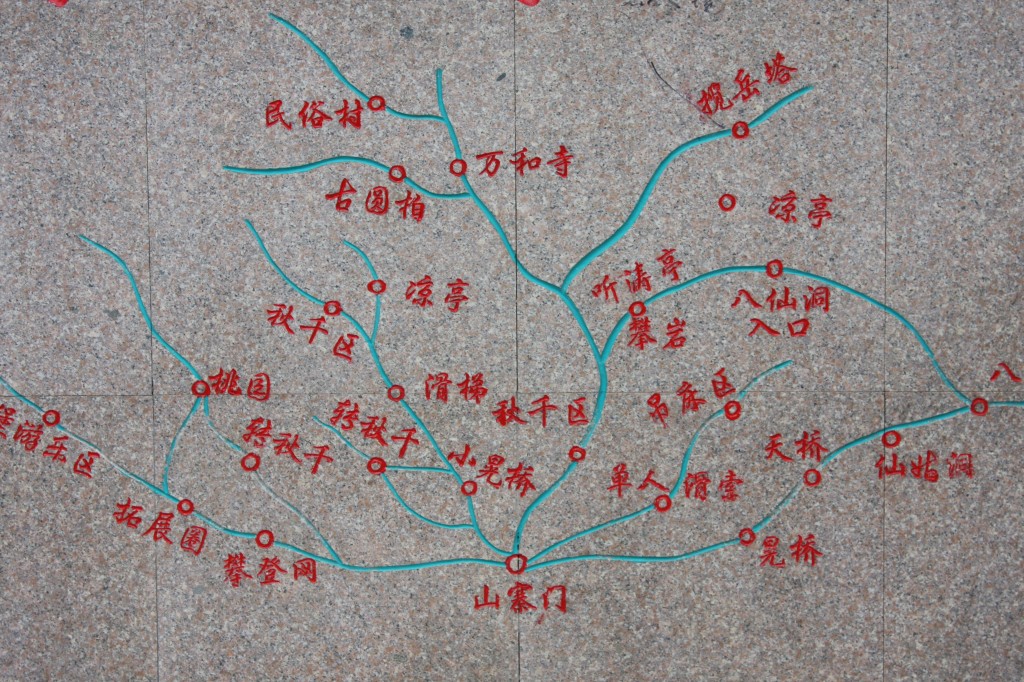 揽岳塔
民俗村
万和寺
古圆柏
凉亭
听涛亭
八仙洞
入口
凉亭
秋千区
攀岩
桃园
滑梯
吊床区
八
秋千区
转秋千
转秋千
天桥
游乐区
小晃桥
单人滑索
仙姑洞
拓展园
晃桥
攀登网
山寨门